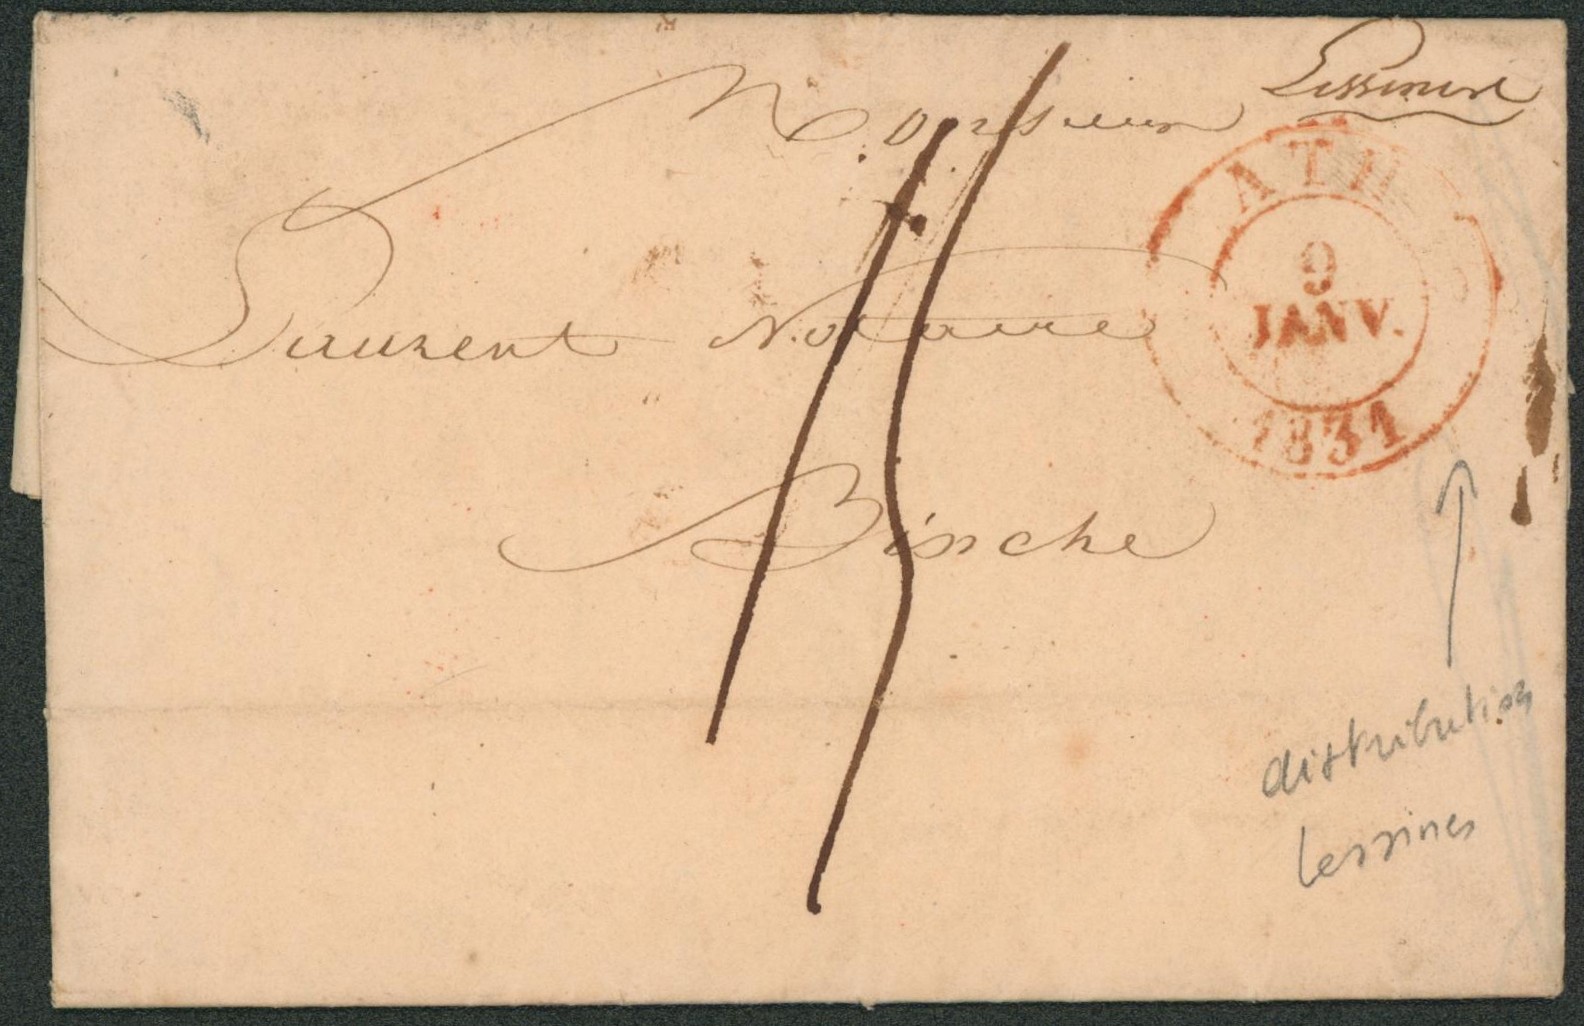 Lessines
Monsieur
Laurent Notaire
Binche
ATH
9
JANV.
1831
distribution
lessines